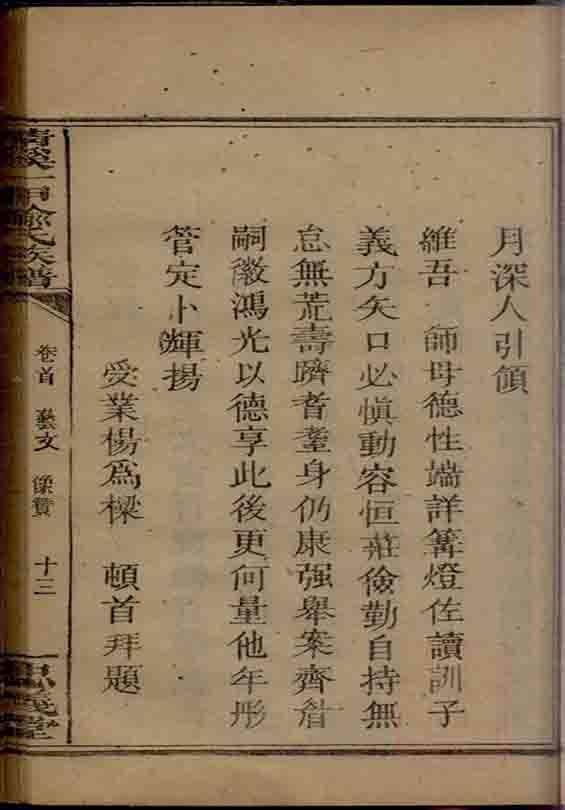 月深人引領
維吾 師母德性端詳篝燈佐讀訓子
義方矢口必慎動容恒莊儉勤自持無
怠無荒壽躋耆耋身仍康强舉案齊眉
嗣徽鴻光以德享此後更何量他年彤
管定卜輝揚
受業楊爲樑 頓首拜題
俞氏族譜
卷首 藝文 像贊 十三